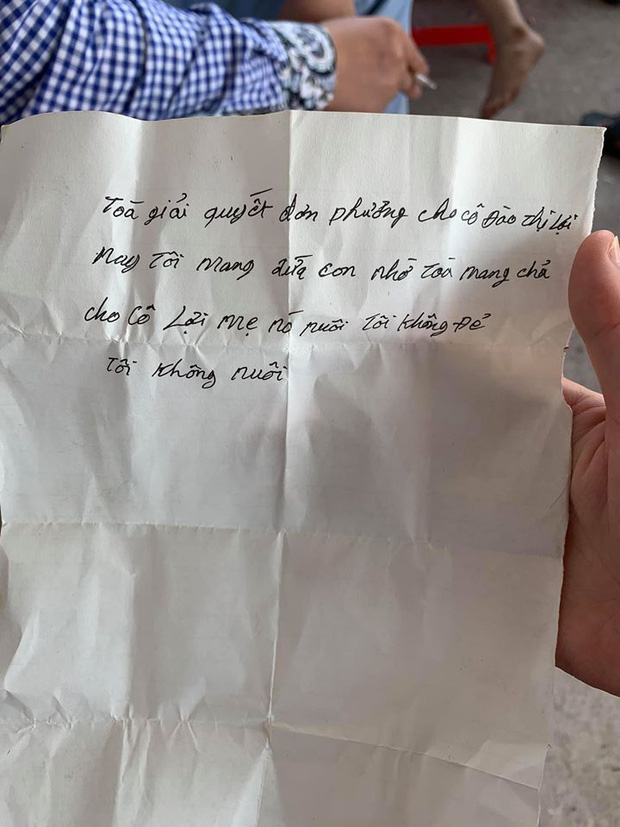 Toà giải quyết đơn phưởng cho cô Đào Thị Lợi
nay Tôi mang đứa con nhờ Toà mang chả
cho Cô Lợi mẹ nó nuôi Tôi không Đẻ
Tôi không nuôi